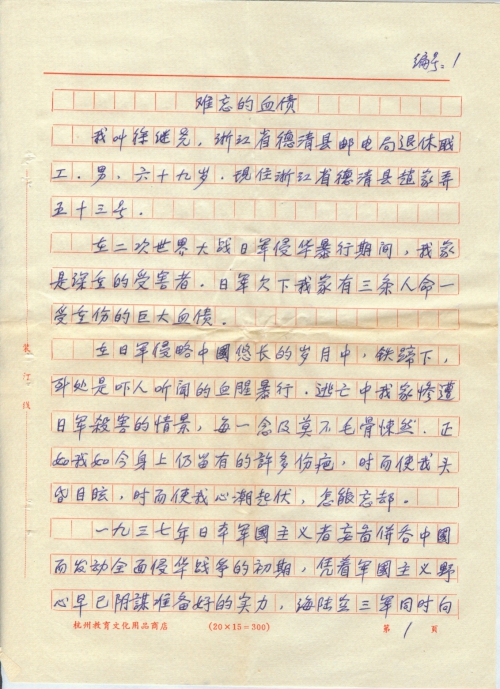 编号：1
难忘的血债
我叫徐继尧，浙江省德清县邮电局退休职
工．男．六十九岁．现住浙江省德清县赵家弄
五十三号．
在二次世界大战日军侵华暴行期间，我家
是深重的受害者．日军欠下我家有三条人命一
受重伤的巨大血债．
在日军侵略中國悠长的岁月中，铁蹄下，
到处是吓人听闻的血腥暴行．逃亡中我家惨遭
日军殺害的情景，每一念及莫不毛骨悚然．正
如我如今身上仍留有的許多伤疤，时而使我头
昏目眩，时而使我心潮起伏，怎能忘却．
一九三七年日本军國主义者妄啚併吞中國
而发动全面侵华战争的初期，凭着军國主义野
心早已阴謀准备好的实力，海陆空三军同时向
装订线
杭州教育文化用品商店 (20×15=300) 第 1 頁